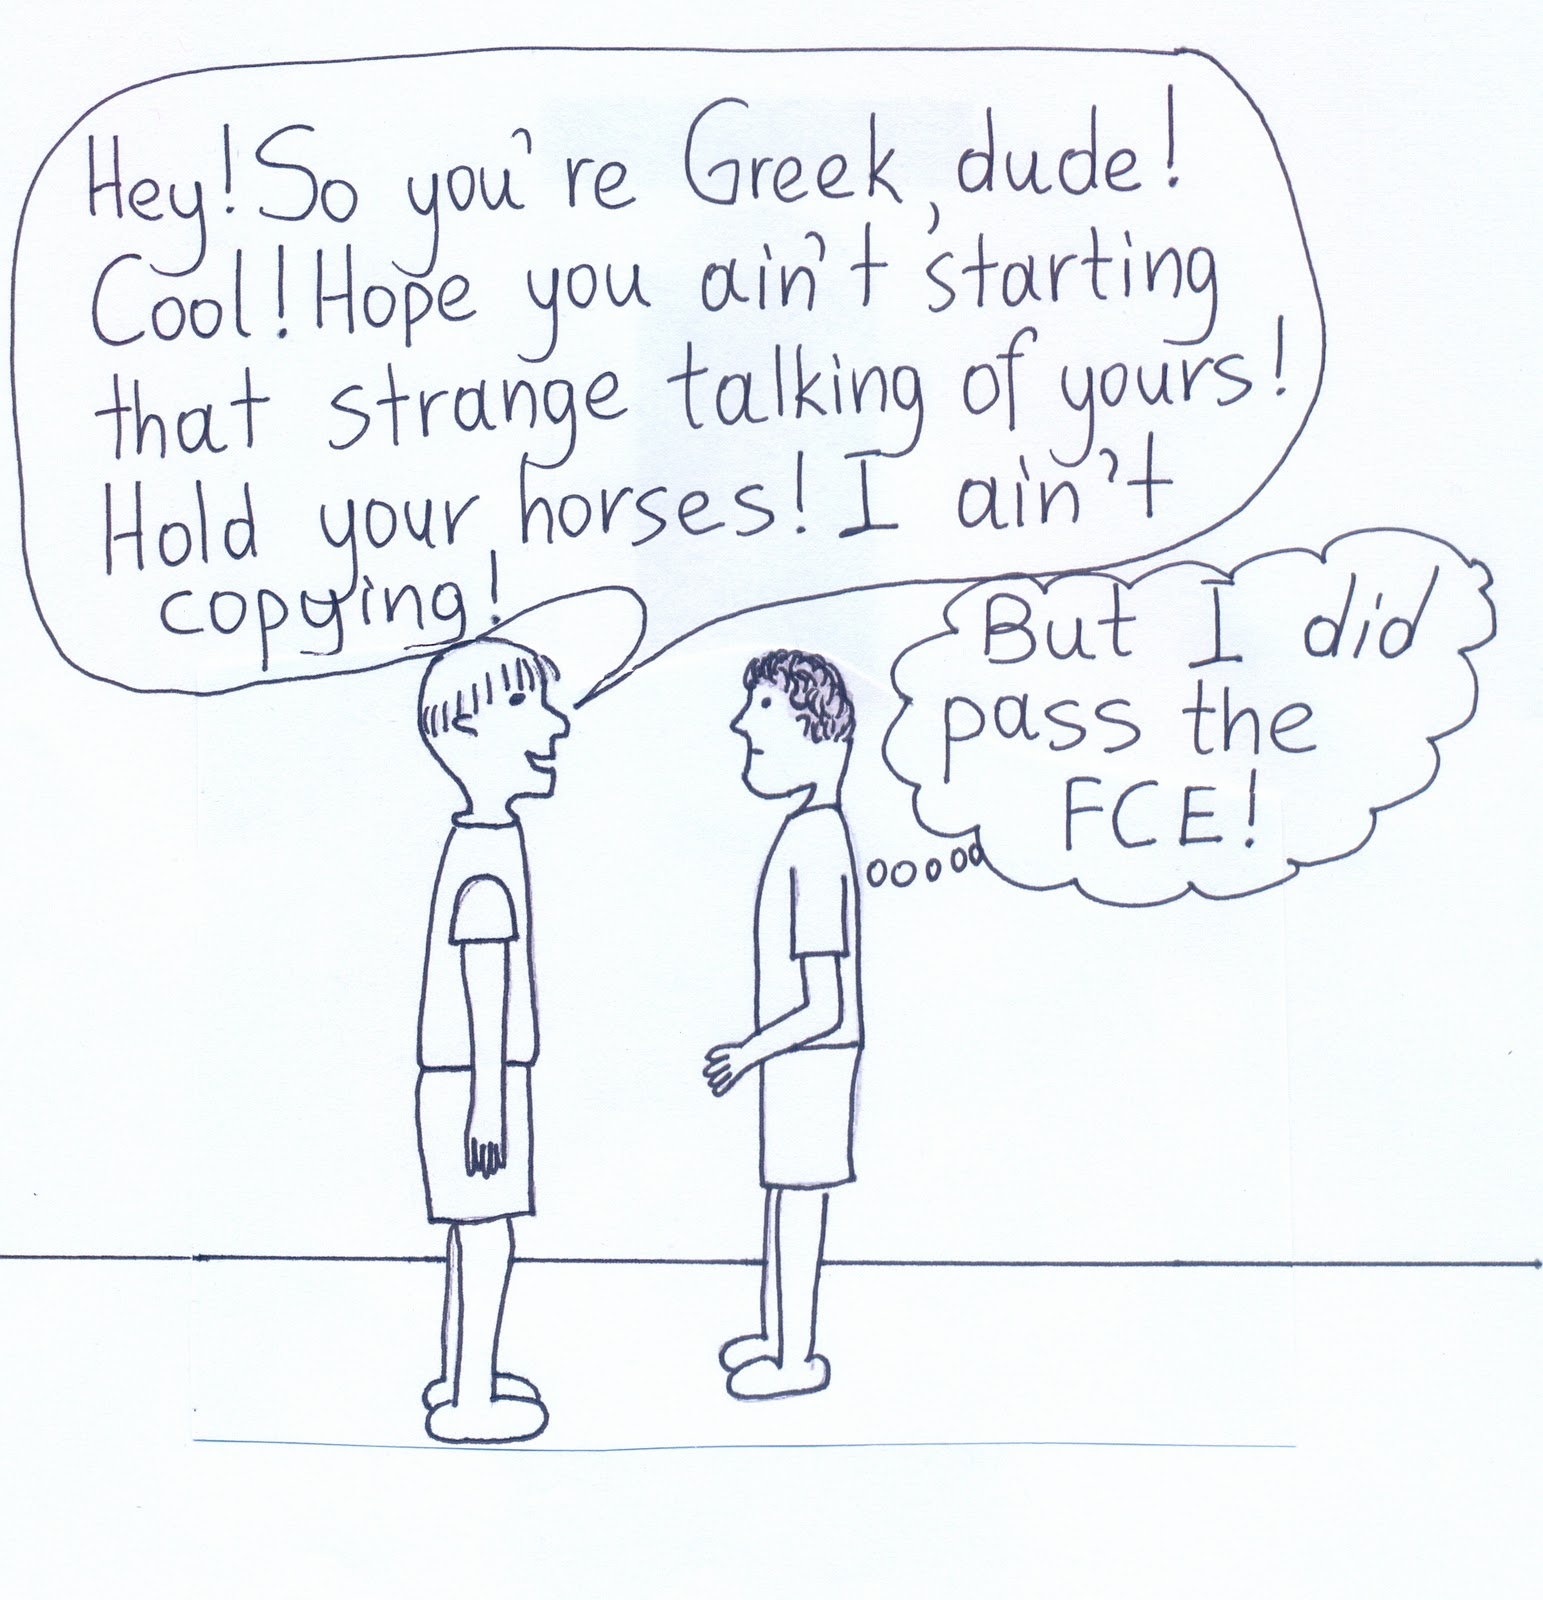 Hey! So you're Greek, dude!
Cool! Hope you ain't starting
that strange talking of yours!
Hold your horses! I ain't
copying!
But I did
pass the
FCE!